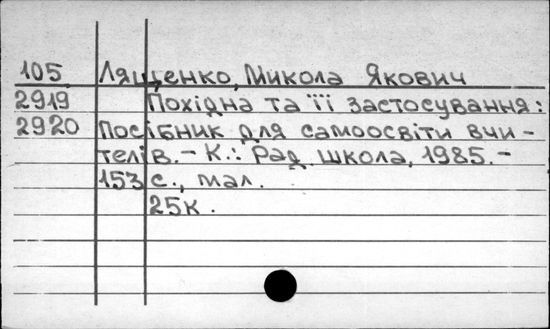 105 Лященко, Микола Якович
2919 Похідна та її застосування:
2920 Посібник для самоосвіти вчи-
телів. - К.: Рад. школа, 1985. -
153 с., мал.
25к.